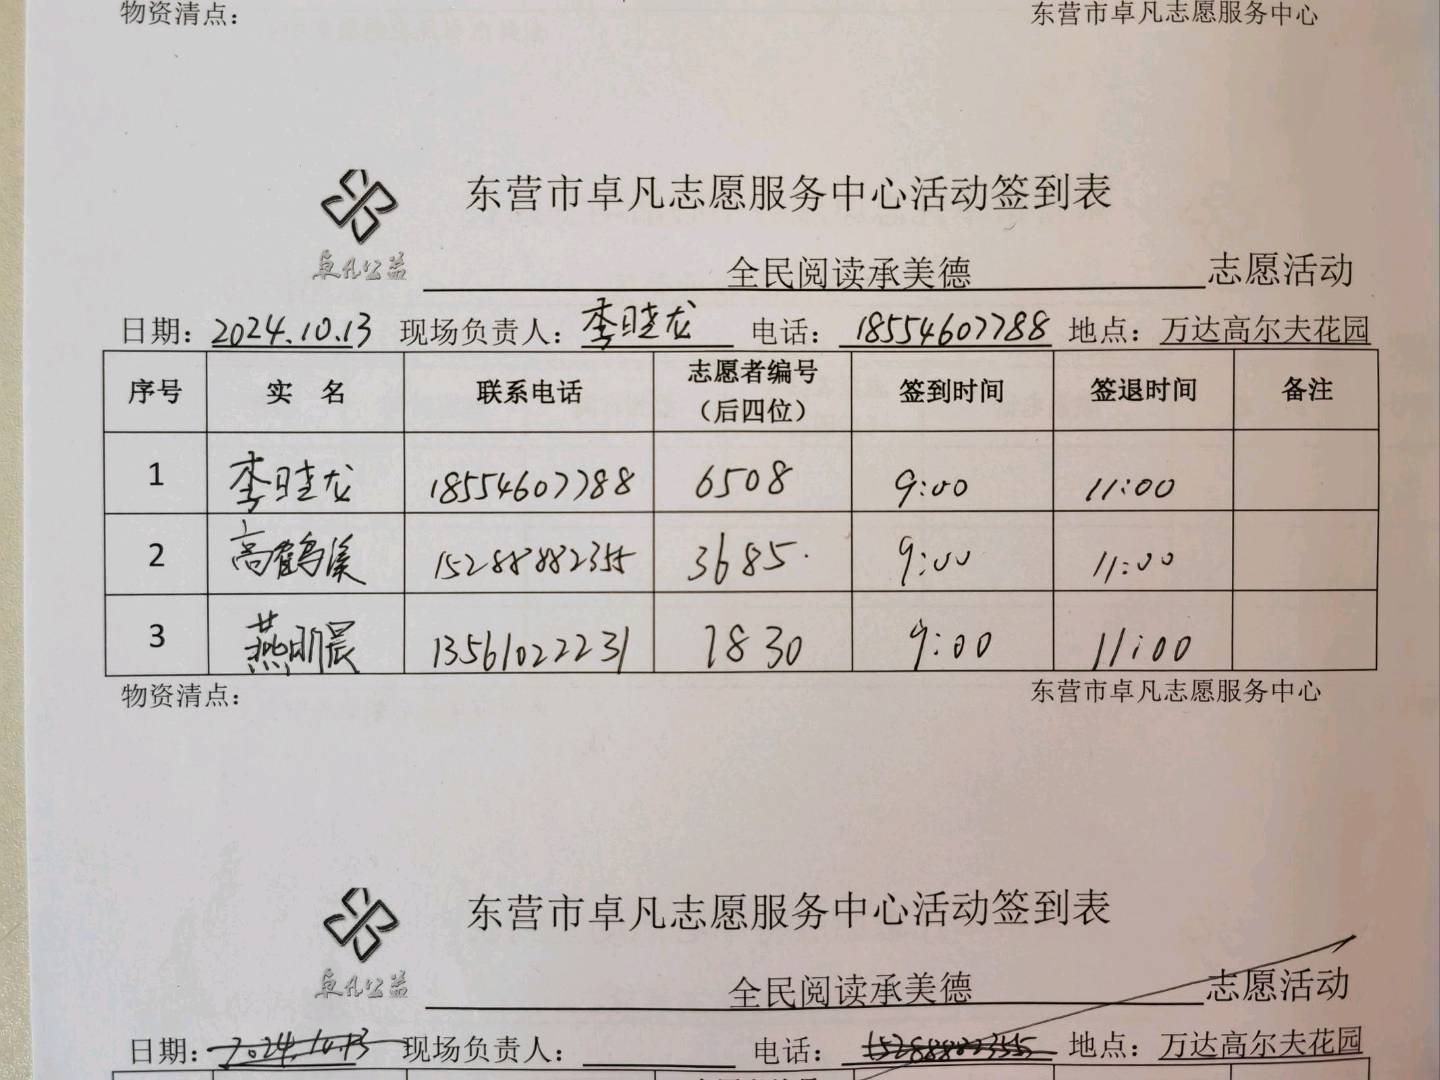 物资清点：	东营市卓凡志愿服务中心
东营市卓凡志愿服务中心活动签到表
卓凡公益
全民阅读承美德 志愿活动
日期：2024.10.13 现场负责人：李晓龙 电话：18554607788 地点：万达高尔夫花园
序号 实 名 联系电话 志愿者编号（后四位） 签到时间 签退时间 备注
1 李晓龙 18554607788 6508 9:00 11:00
2 高鹤溪 15288882355 3685. 9:00 11:00
3 燕明晨 13561022231 1830 9:00 11:00
物资清点： 东营市卓凡志愿服务中心
东营市卓凡志愿服务中心活动签到表
卓凡公益
全民阅读承美德 志愿活动
日期：2024.10.13 现场负责人： 电话：15288882355 地点：万达高尔夫花园